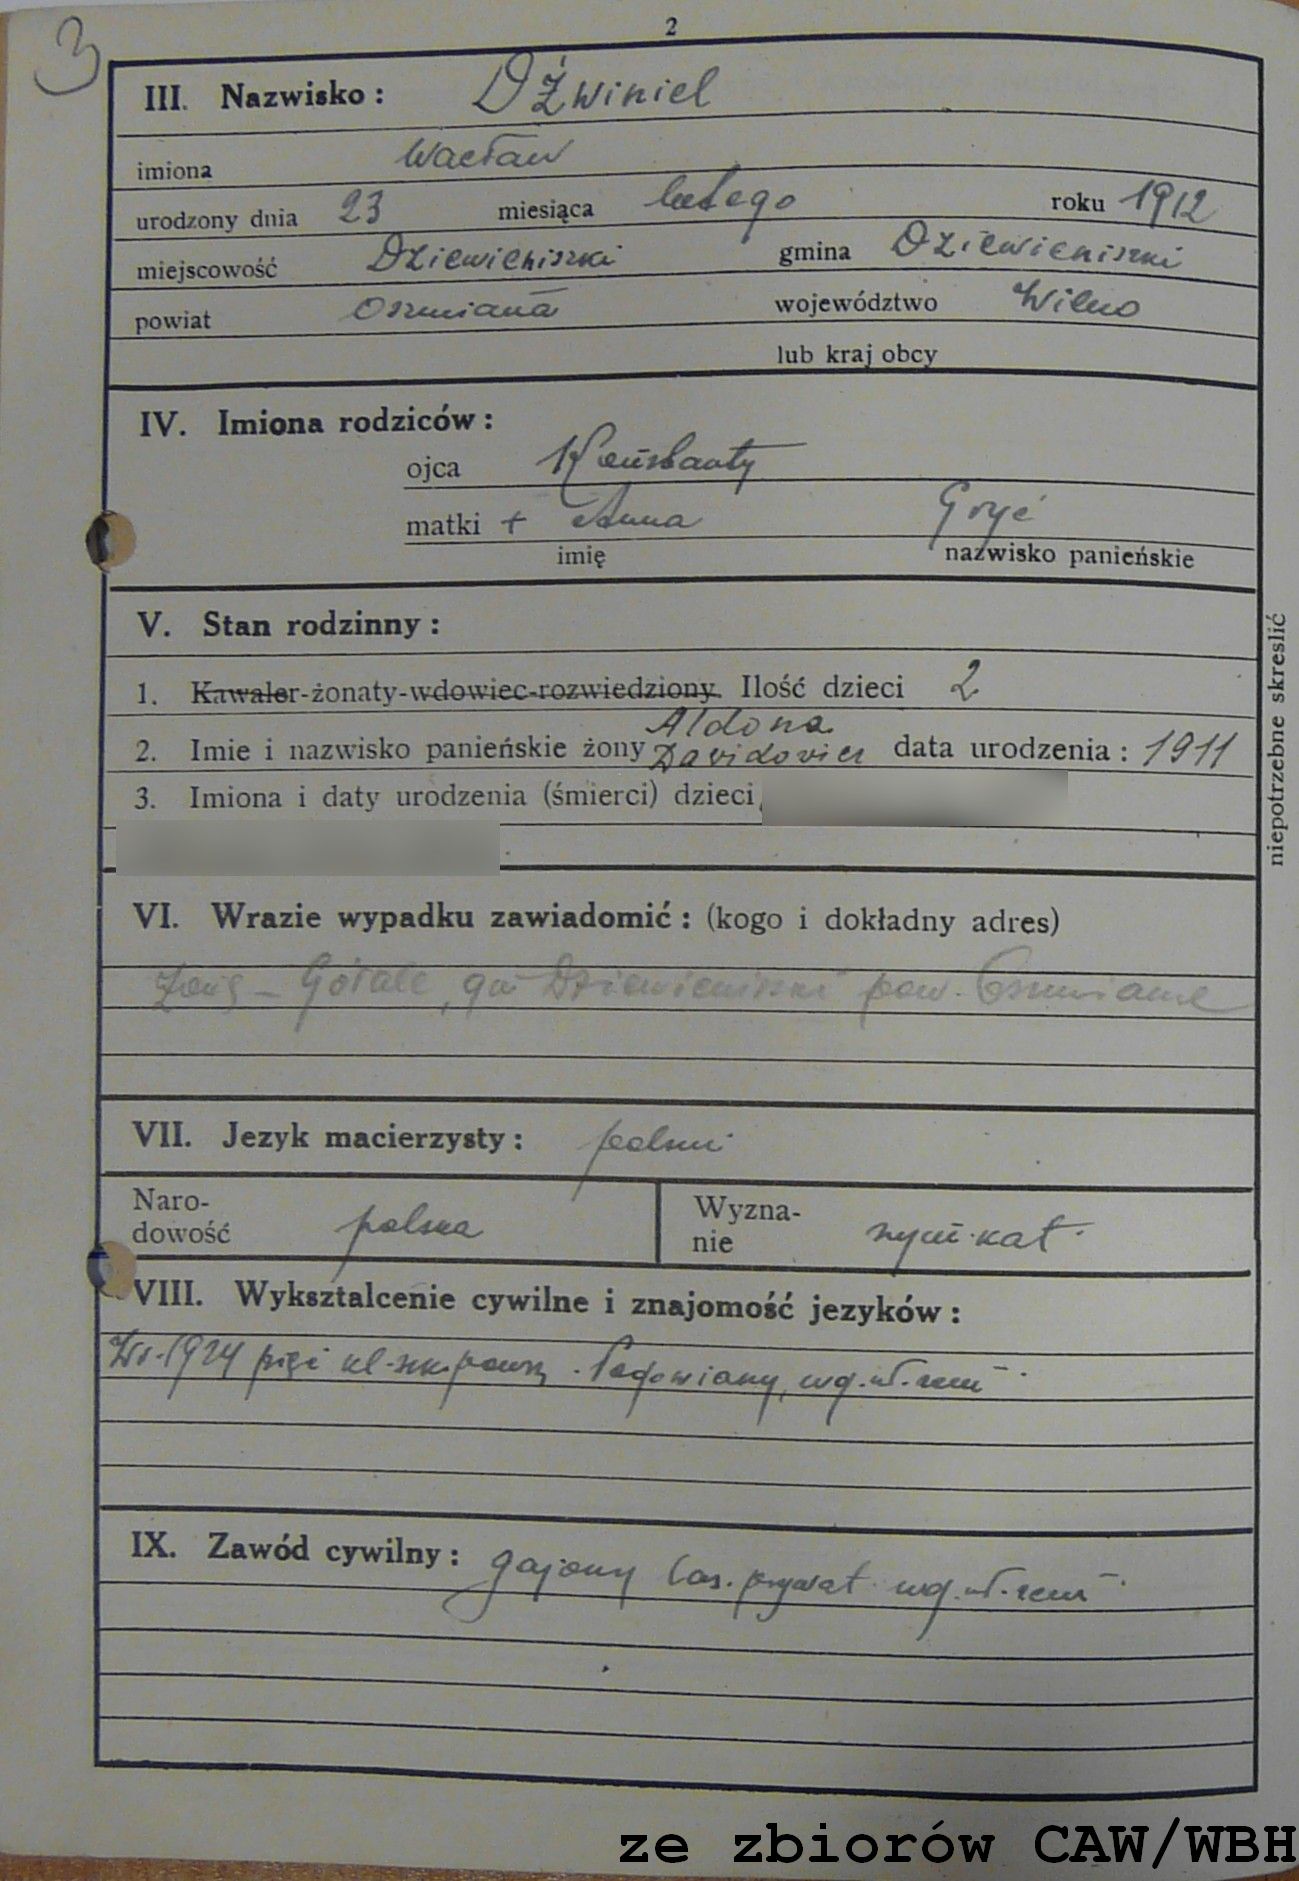 3
2
III. Nazwisko : Dźwiniel
imiona Wacław
urodzony dnia 23 miesiąca lutego roku 1912
miejscowość Dziewieniszki gmina Dziewieniszki
powiat Oszmiana województwo Wilno
lub kraj obcy
IV. Imiona rodziców :
ojca Konstanty
matki + Anna Gryć
imię nazwisko panieńskie
V. Stan rodzinny :
1. Kawaler-żonaty-wdowiec-rozwiedziony. Ilość dzieci 2
Aldona
2. Imie i nazwisko panieńskie żony Davidovicz data urodzenia : 1911
3. Imiona i daty urodzenia (śmierci) dzieci
niepotrzebne skreslić
VI. Wrazie wypadku zawiadomić : (kogo i dokładny adres)
Żonę – Górale, gm Dziewieniszki pow. Oszmiana
VII. Jezyk macierzysty : polski
Naro- Wyzna-
dowość polska nie rzym. kat.
VIII. Wyksztalcenie cywilne i znajomość jezyków :
1924 pięć kl. szk. powsz. wg. wł. zezn.
IX. Zawód cywilny : gajowy las. prywat. wg. wł. zezn.
ze zbiorów CAW/WBH